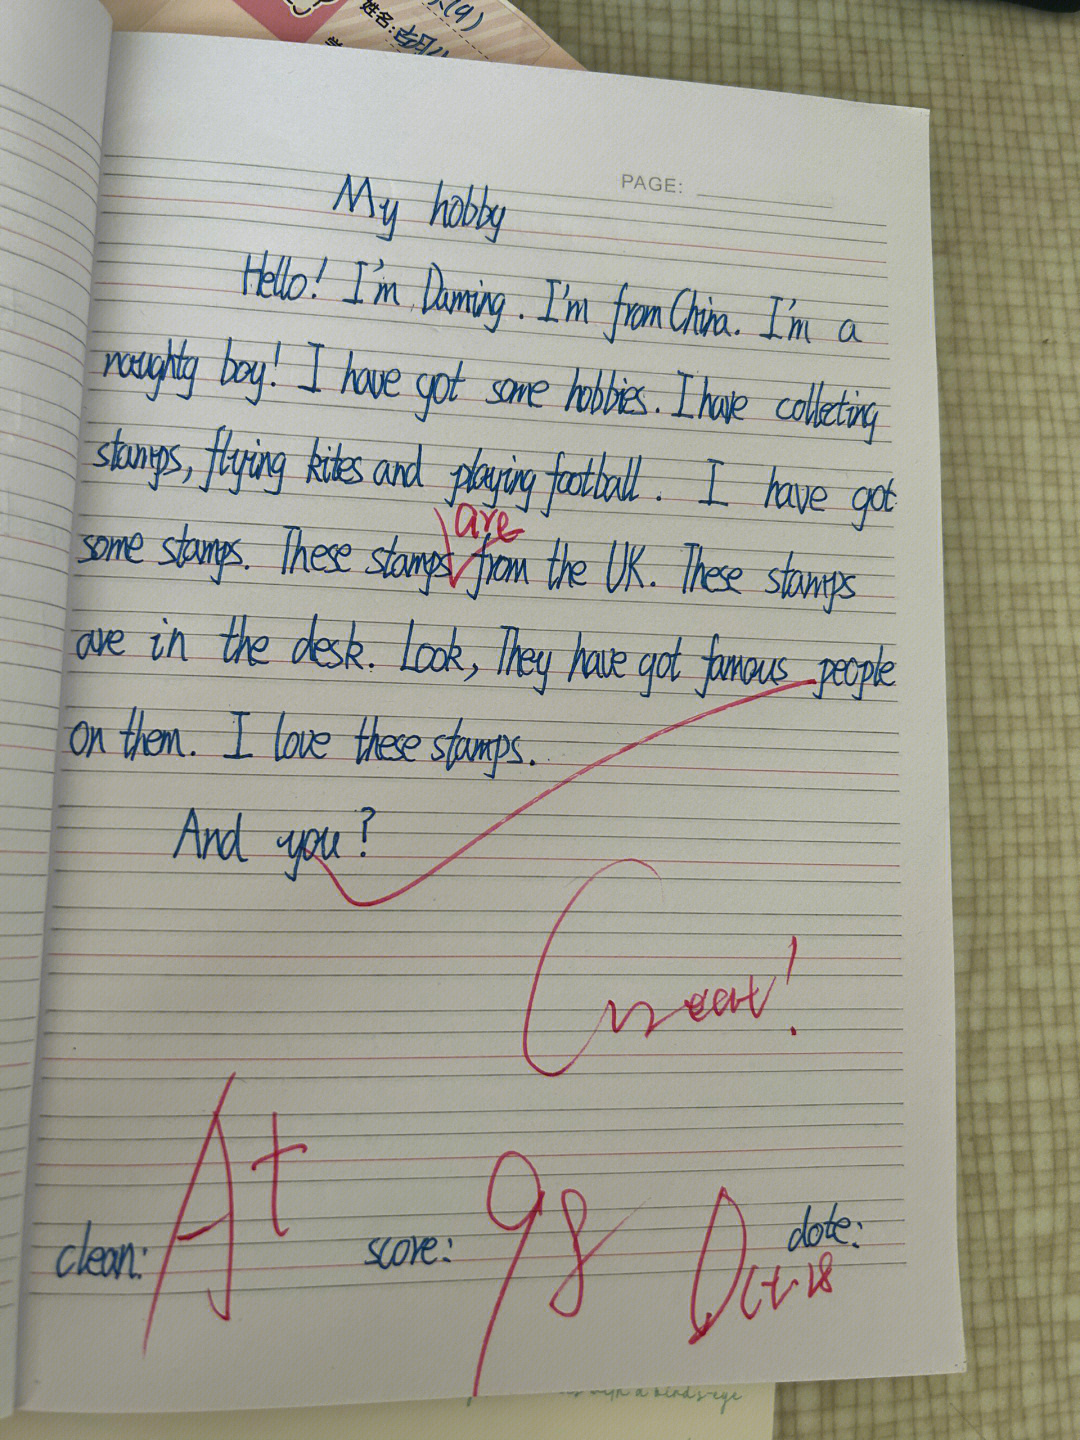 (9)
姓名:
PAGE:
My hobby
Hello! I'm Daming. I'm from China. I'm a
naughty boy! I have got some hobbies. I have collecting
stamps, flying kites and playing football. I have got
are
some stamps. These stamps from the UK. These stamps
are in the desk. Look, They have got famous people
on them. I love these stamps.
And you?
Great!
clean: A+ score: 98 date:
Oct. 18
with a bird's-eye